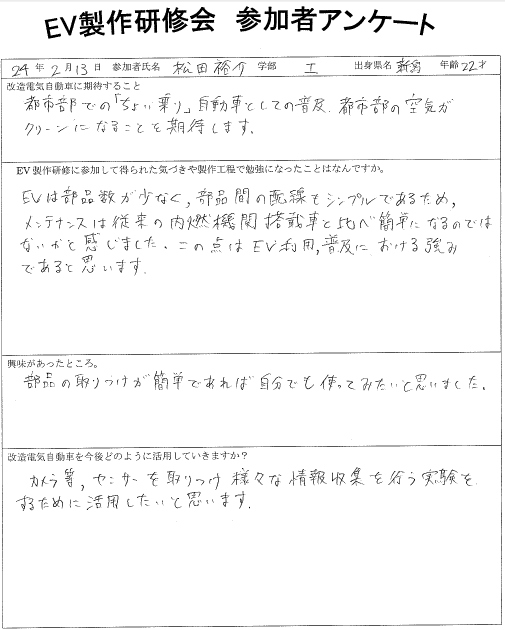 EV製作研修会 参加者アンケート
24年2月13日 参加者氏名 松田裕介 学部 工 出身県名 新潟 年齢 22才
改造電気自動車に期待すること
都市部での「ちょい乗り」自動車としての普及. 都市部の空気が
クリーンになることを期待します.
EV製作研修に参加して得られた気づきや製作工程で勉強になったことはなんですか。
EVは部品数が少なく, 部品間の配線もシンプルであるため,
メンテナンスは従来の内燃機関搭載車と比べ簡単になるのでは
ないかと感じました. この点はEV利用, 普及における強み
であると思います.
興味があったところ。
部品の取りつけが簡単であれば自分でも使ってみたいと思いました.
改造電気自動車を今後どのように活用していきますか？
カメラ等, センサーを取りつけ様々な情報収集を行う実験を
するために活用したいと思います.